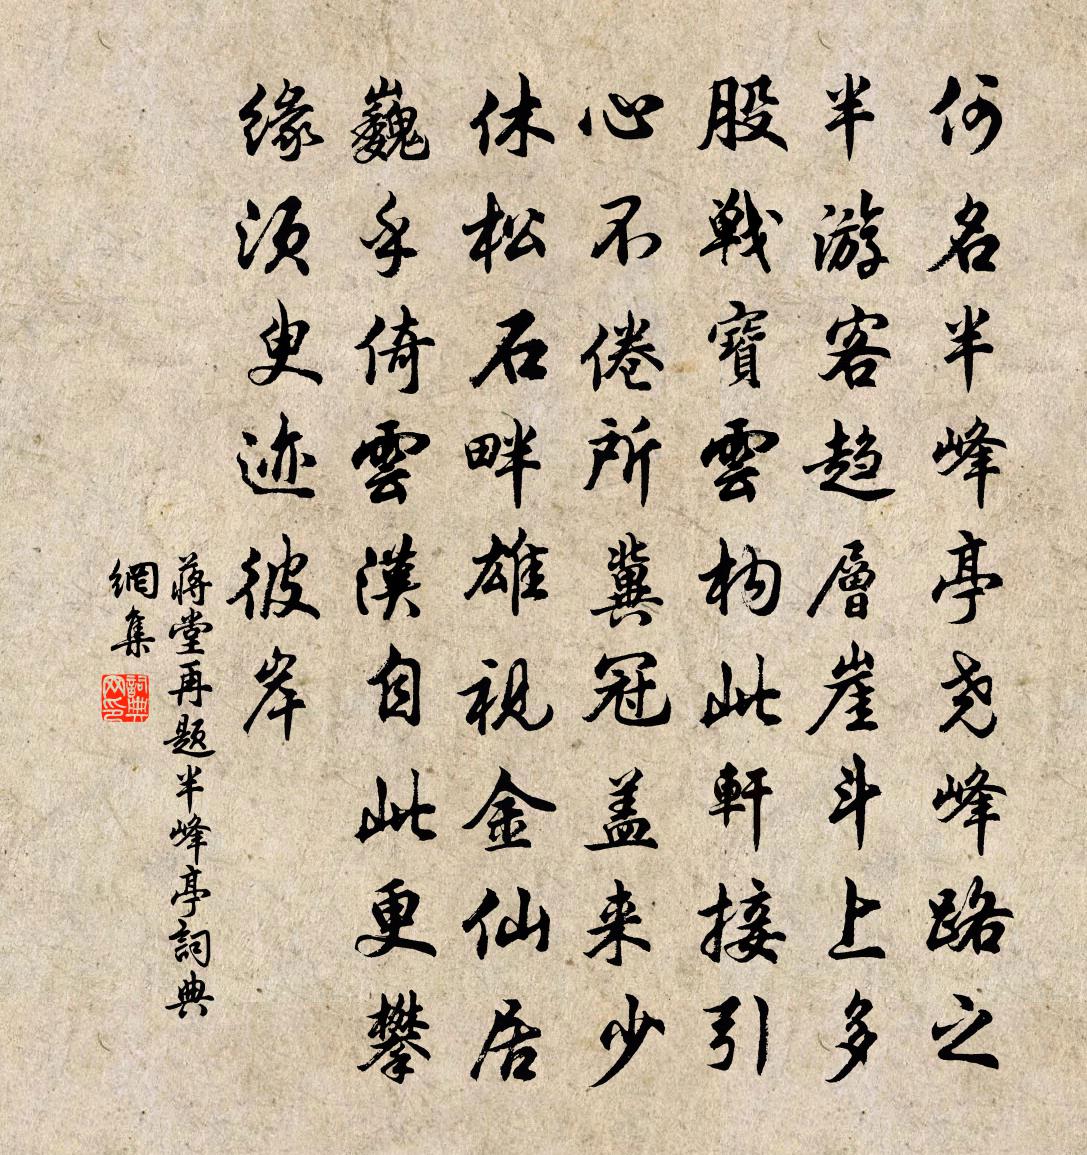 何名半峰亭尧峰路之
半游客趋層崖斗上多
股戦寶雲构此軒接引
心不倦所冀冠盖来少
休松石畔雄視金仙居
巍乎倚雲漢自此更攀
缘须臾迹彼岸
蒋堂再题半峰亭詞典
網集
詞典
网印